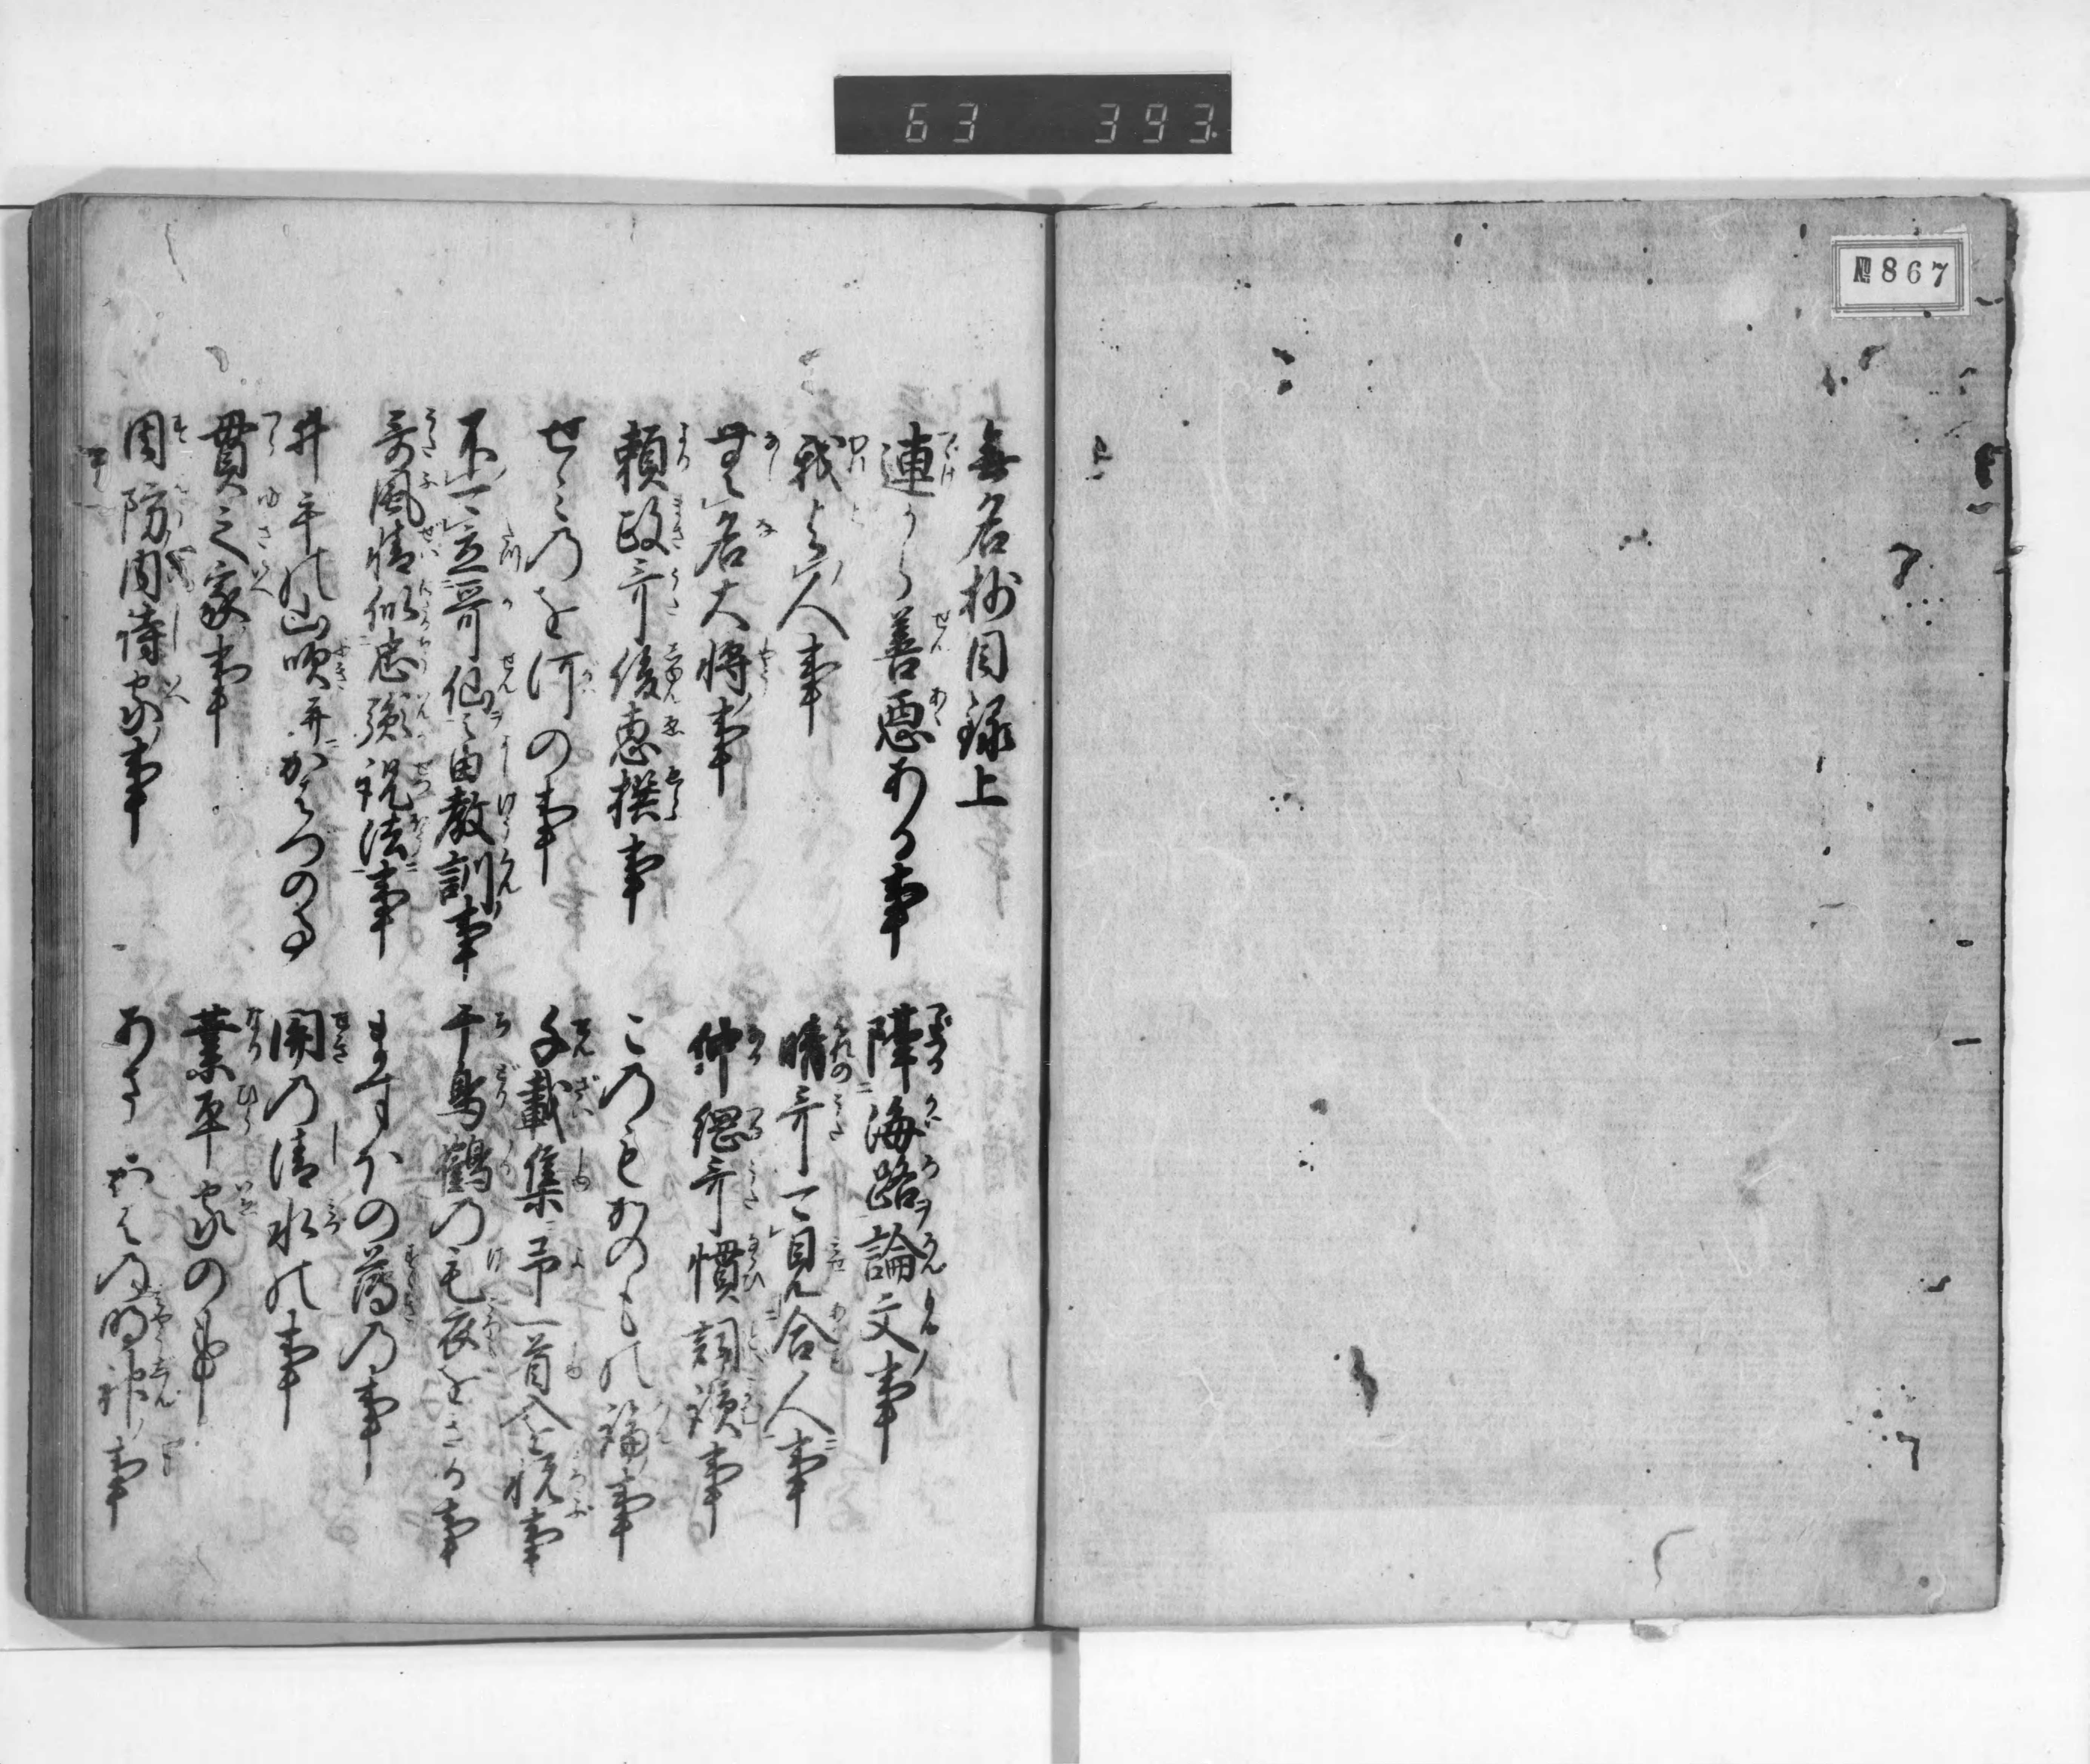 63 393
№867
無名抄目録上
連うら善悪ある事
隔海路論文事
我与人事
晴哥可見合人事
無名大将事
仲綱哥慣詞読事
頼政哥俊恵撰事
このもかのもの論事
せみのを河の事
千載集ニ予一首入悦事
不可立哥仙之由教訓事
千鳥鶴の毛衣をきる事
哥風情似忠胤説法事
ますほの薄の事
井手の山吹并かはづの事
関の清水の事
貫之家事
業平家の事
周防内侍家事
あさ も は の明神事